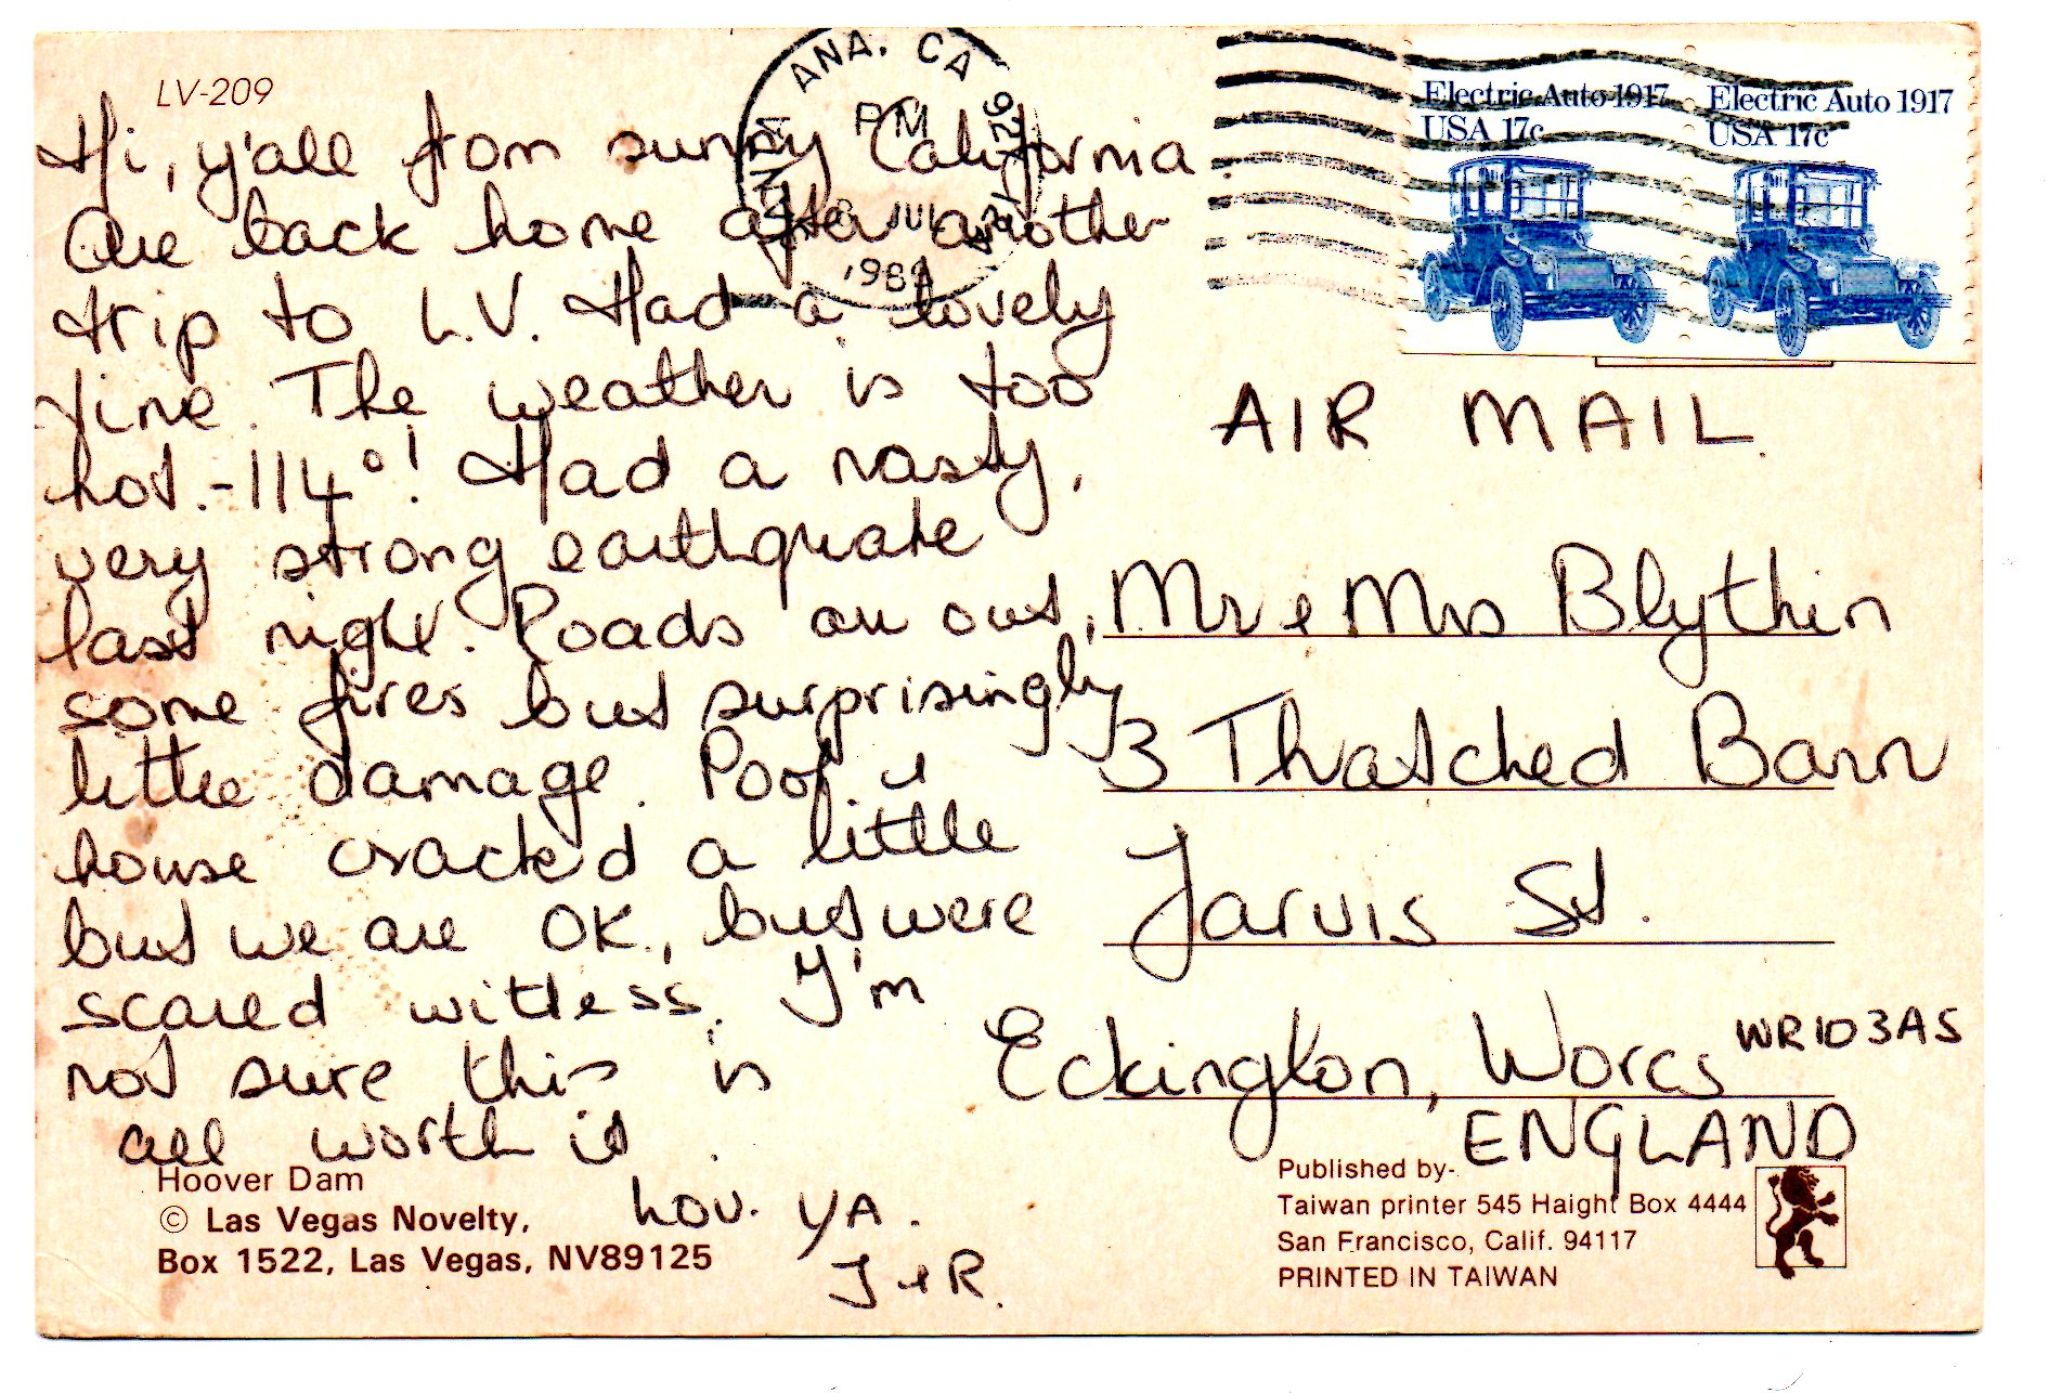 LV-209
Hi, y'all from sunny California.
Are back home after another
trip to L.V. Had a lovely
time. The weather is too
hot.-114°! Had a nasty,
very strong earthquake
last night. Roads are out,
some fires but surprisingly
little damage. Pool &
house cracked a little
but we are OK., but were
scared witless. I'm
not sure this is
all worth it.
Luv. YA.
J & R.
Hoover Dam
© Las Vegas Novelty,
Box 1522, Las Vegas, NV89125
SANTA ANA. CA 927
PM
JUL
Electric Auto 1917
USA 17c
Electric Auto 1917
USA 17c
AIR MAIL.
Mr & Mrs Blythin
3 Thatched Barn
Jarvis St.
Eckington, Worcs WR103AS
ENGLAND
Published by-
Taiwan printer 545 Haight Box 4444
San Francisco, Calif. 94117
PRINTED IN TAIWAN